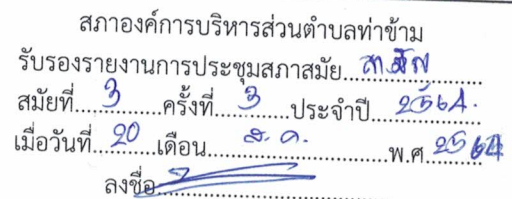 สภาองค์การบริหารส่วนตำบลท่าข้าม
รับรองรายงานการประชุมสภาสมัย...สามัญ...
สมัยที่...3...ครั้งที่...3...ประจำปี...2564.
เมื่อวันที่...20...เดือน...ส.ค....พ.ศ...2564
ลงชื่อ...